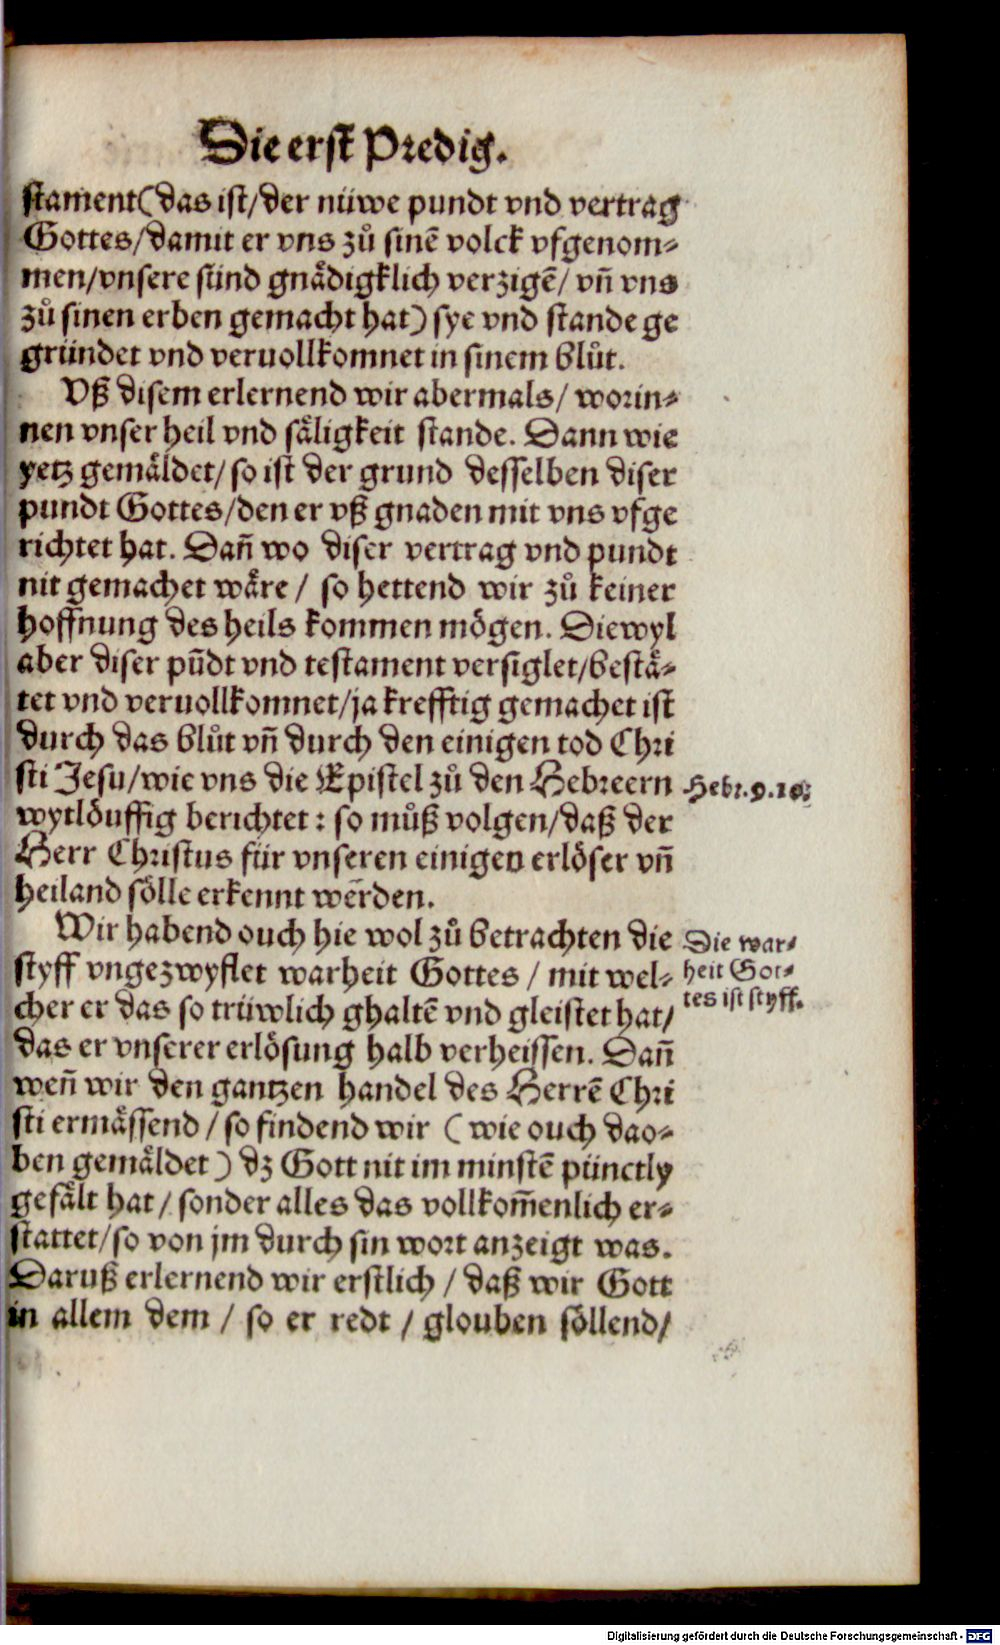 Die erst Predig.
stament (das ist / der nüwe pundt vnd vertrag
Gottes / damit er vns zů sinē volck vfgenom-
men / vnsere sünd gnädigklich verzigē / vñ vns
zů sinen erben gemacht hat) sye vnd stande ge
gründet vnd veruollkomnet in sinem blůt.
Vß disem erlernend wir abermals / worin-
nen vnser heil vnd säligkeit stande. Dann wie
yetz gemäldet / so ist der grund desselben diser
pundt Gottes / den er vß gnaden mit vns vfge
richtet hat. Dañ wo diser vertrag vnd pundt
nit gemachet wäre / so hettend wir zů keiner
hoffnung des heils kommen mögen. Diewyl
aber diser pūdt vnd testament versiglet / bestä-
tet vnd veruollkomnet / ja krefftig gemachet ist
durch das blůt vñ durch den einigen tod Chri
sti Jesu / wie vns die Epistel zů den Hebreern
Hebr. 9. 10.
wytlöuffig berichtet : so můß volgen / daß der
Herr Christus für vnseren einigen erlöser vñ
heiland sölle erkennt werden.
Wir habend ouch hie wol zů betrachten die
styff vngezwyflet warheit Gottes / mit wel-
cher er das so trüwlich ghaltē vnd gleistet hat /
Die war-
heit Got-
tes ist styff.
das er vnserer erlösung halb verheissen. Dañ
weñ wir den gantzen handel des Herrē Chri
sti ermässend / so findend wir (wie ouch dao-
ben gemäldet) dz Gott nit im minstē pünctly
gefält hat / sonder alles das vollkom̄enlich er-
stattet / so von jm durch sin wort anzeigt was.
Daruß erlernend wir erstlich / daß wir Gott
in allem dem / so er redt / glouben söllend /
Digitalisierung gefördert durch die Deutsche Forschungsgemeinschaft - DFG